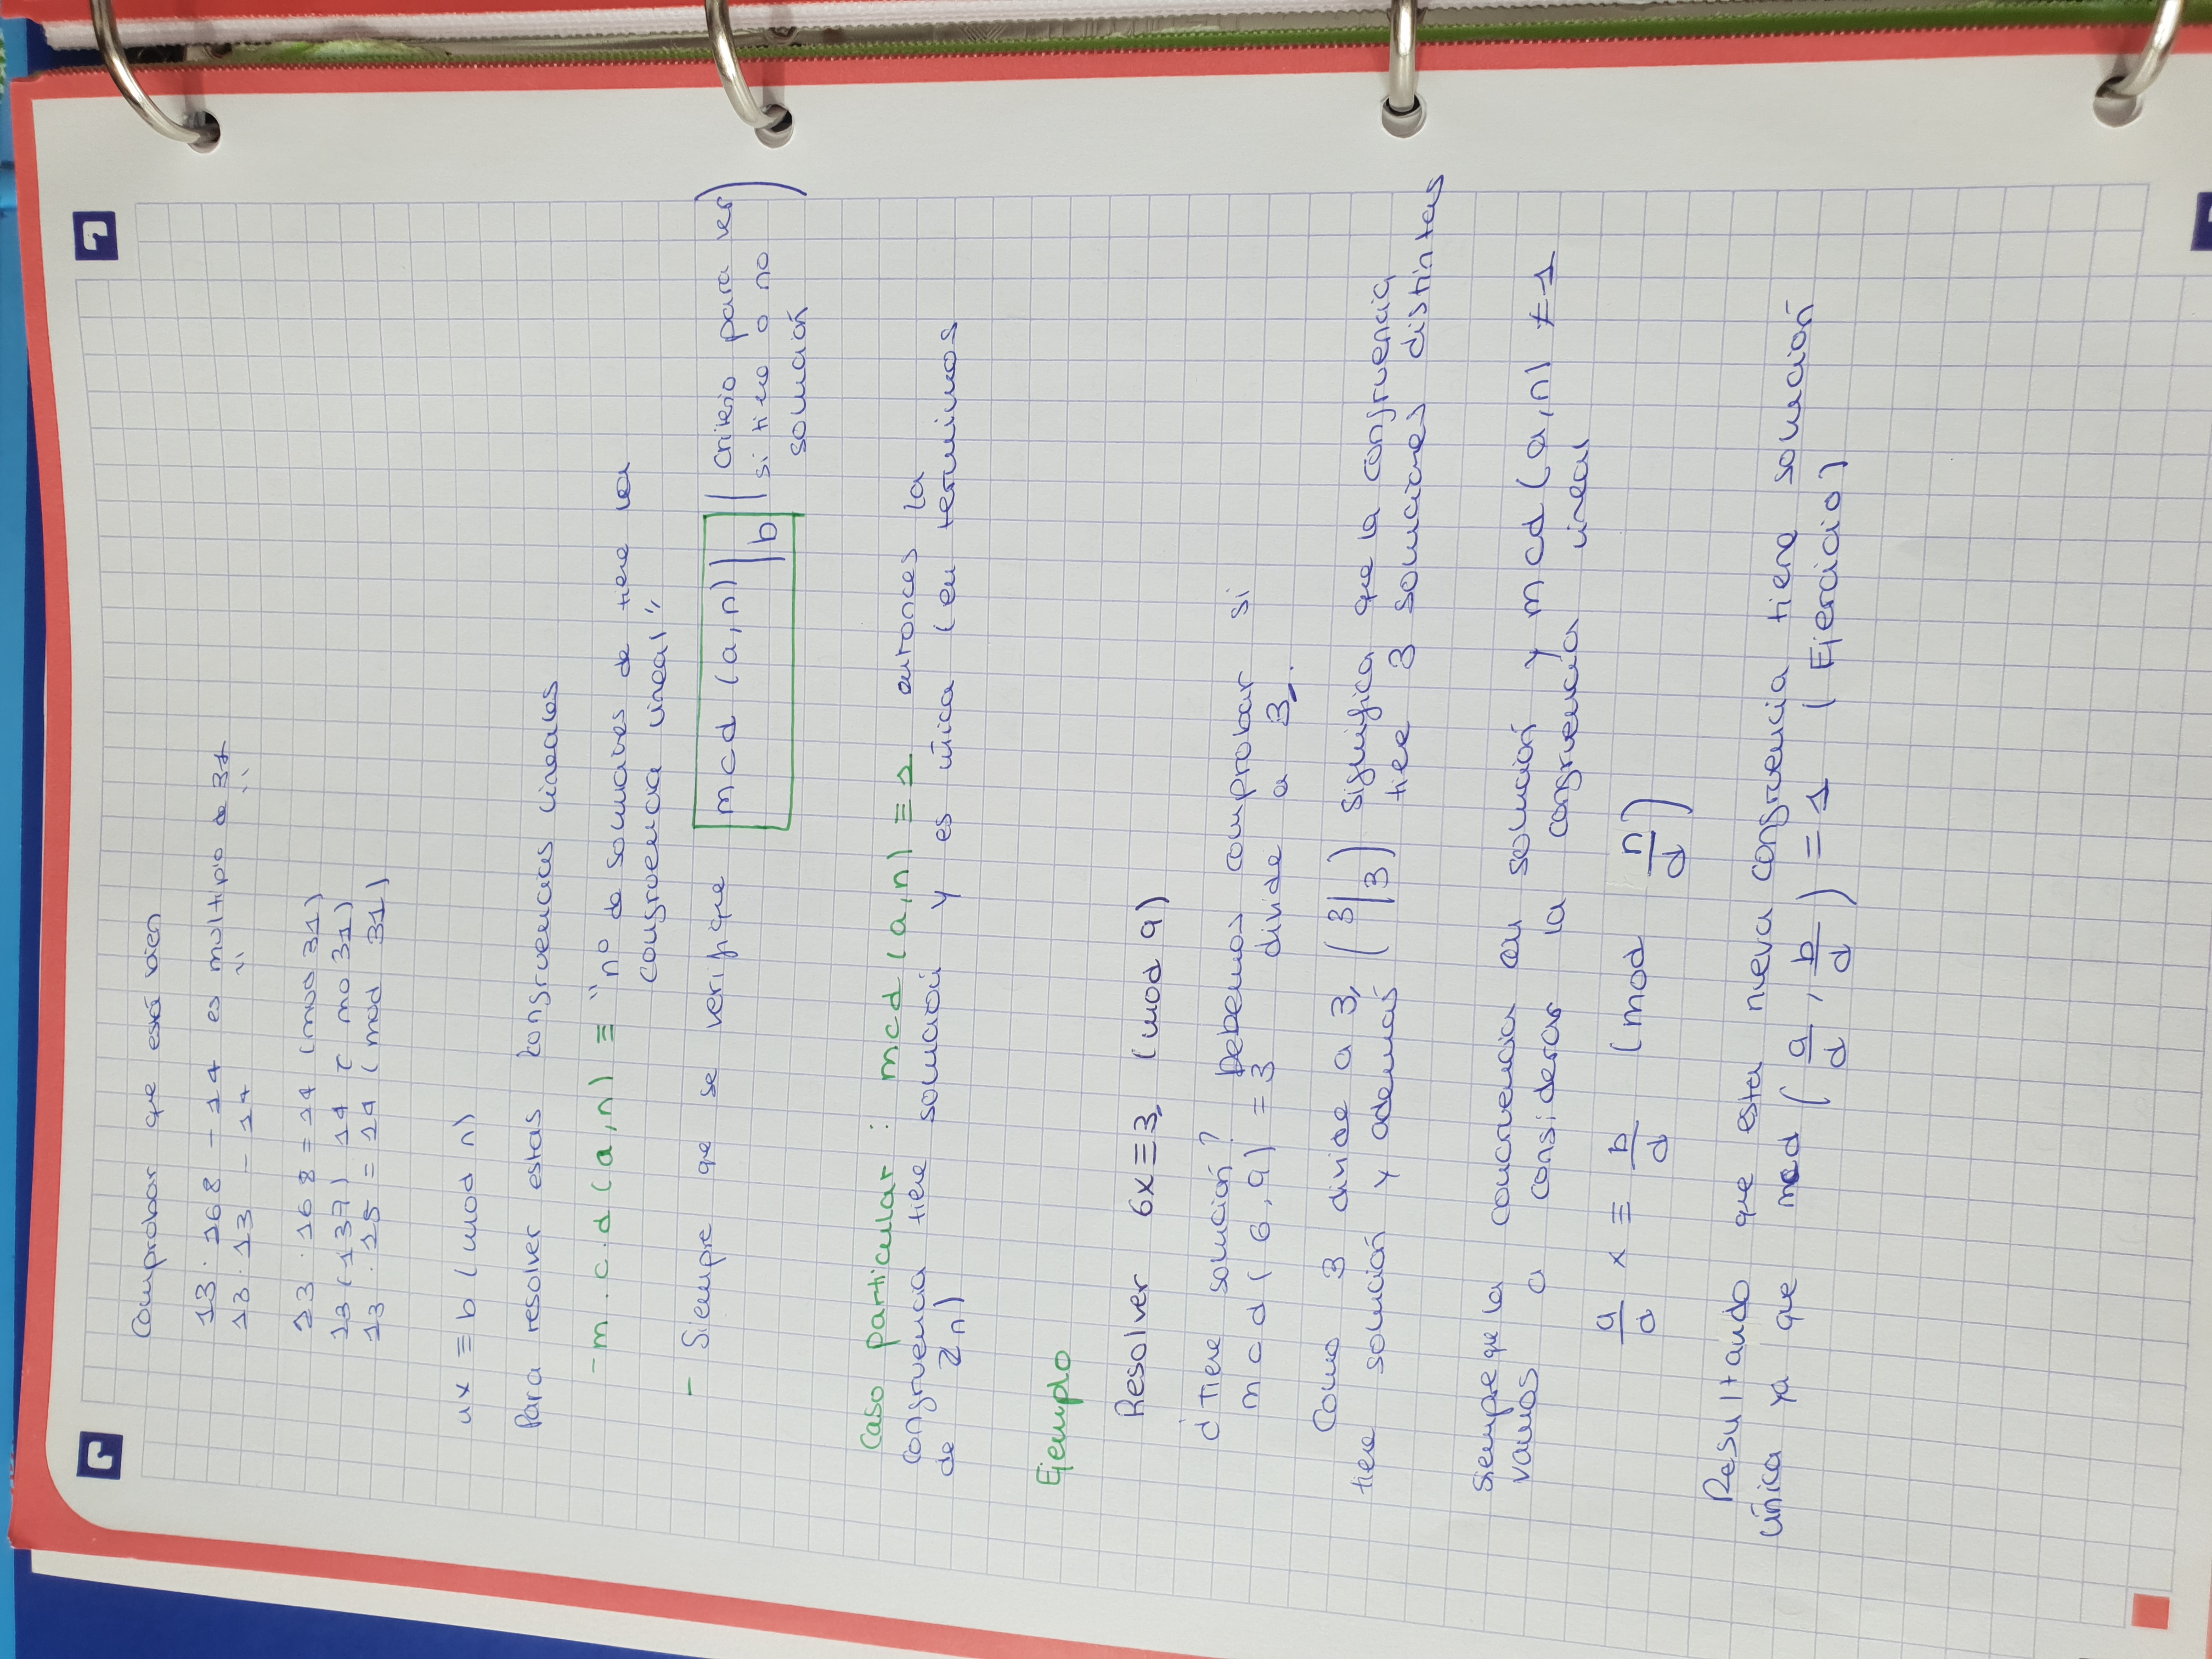 Comprobar que está bien
13 · 168 - 14 es multiplo de 31
13 · 13 - 14 " "
13 · 168 = 14 (mod 31)
13 (137) 14 ( mo 31)
13 · 15 = 14 ( mod 31)
ax ≡ b (mod n)
Para resolver estas congruencias lineales
- m.c.d (a,n) ≡ "nº de soluciones de tiene la
congruencia lineal"
- Siempre que se verifique mcd (a,n) | b (criterio para ver
si tiene o no
solución)
Caso particular: mcd (a,n) = 1 entonces la
congruencia tiene solución y es única (en terminos
de Zn)
Ejemplo
Resolver 6x≡3, (mod 9)
¿Tiene solución? Debemos comprobar si
mcd (6,9) = 3 divide a 3,.
Como 3 divide a 3, (3|3) significa que la congruencia
tiene solución y además tiene 3 soluciones distintas
Siempre que la congruencia con solución y mcd (a,n) ≠ 1
vamos a considerar la congruencia lineal
a/d x ≡ b/d (mod n/d)
Resultando que esta nueva congruencia tiene solución
única ya que mcd (a/d, b/d) = 1 (Ejercicio)